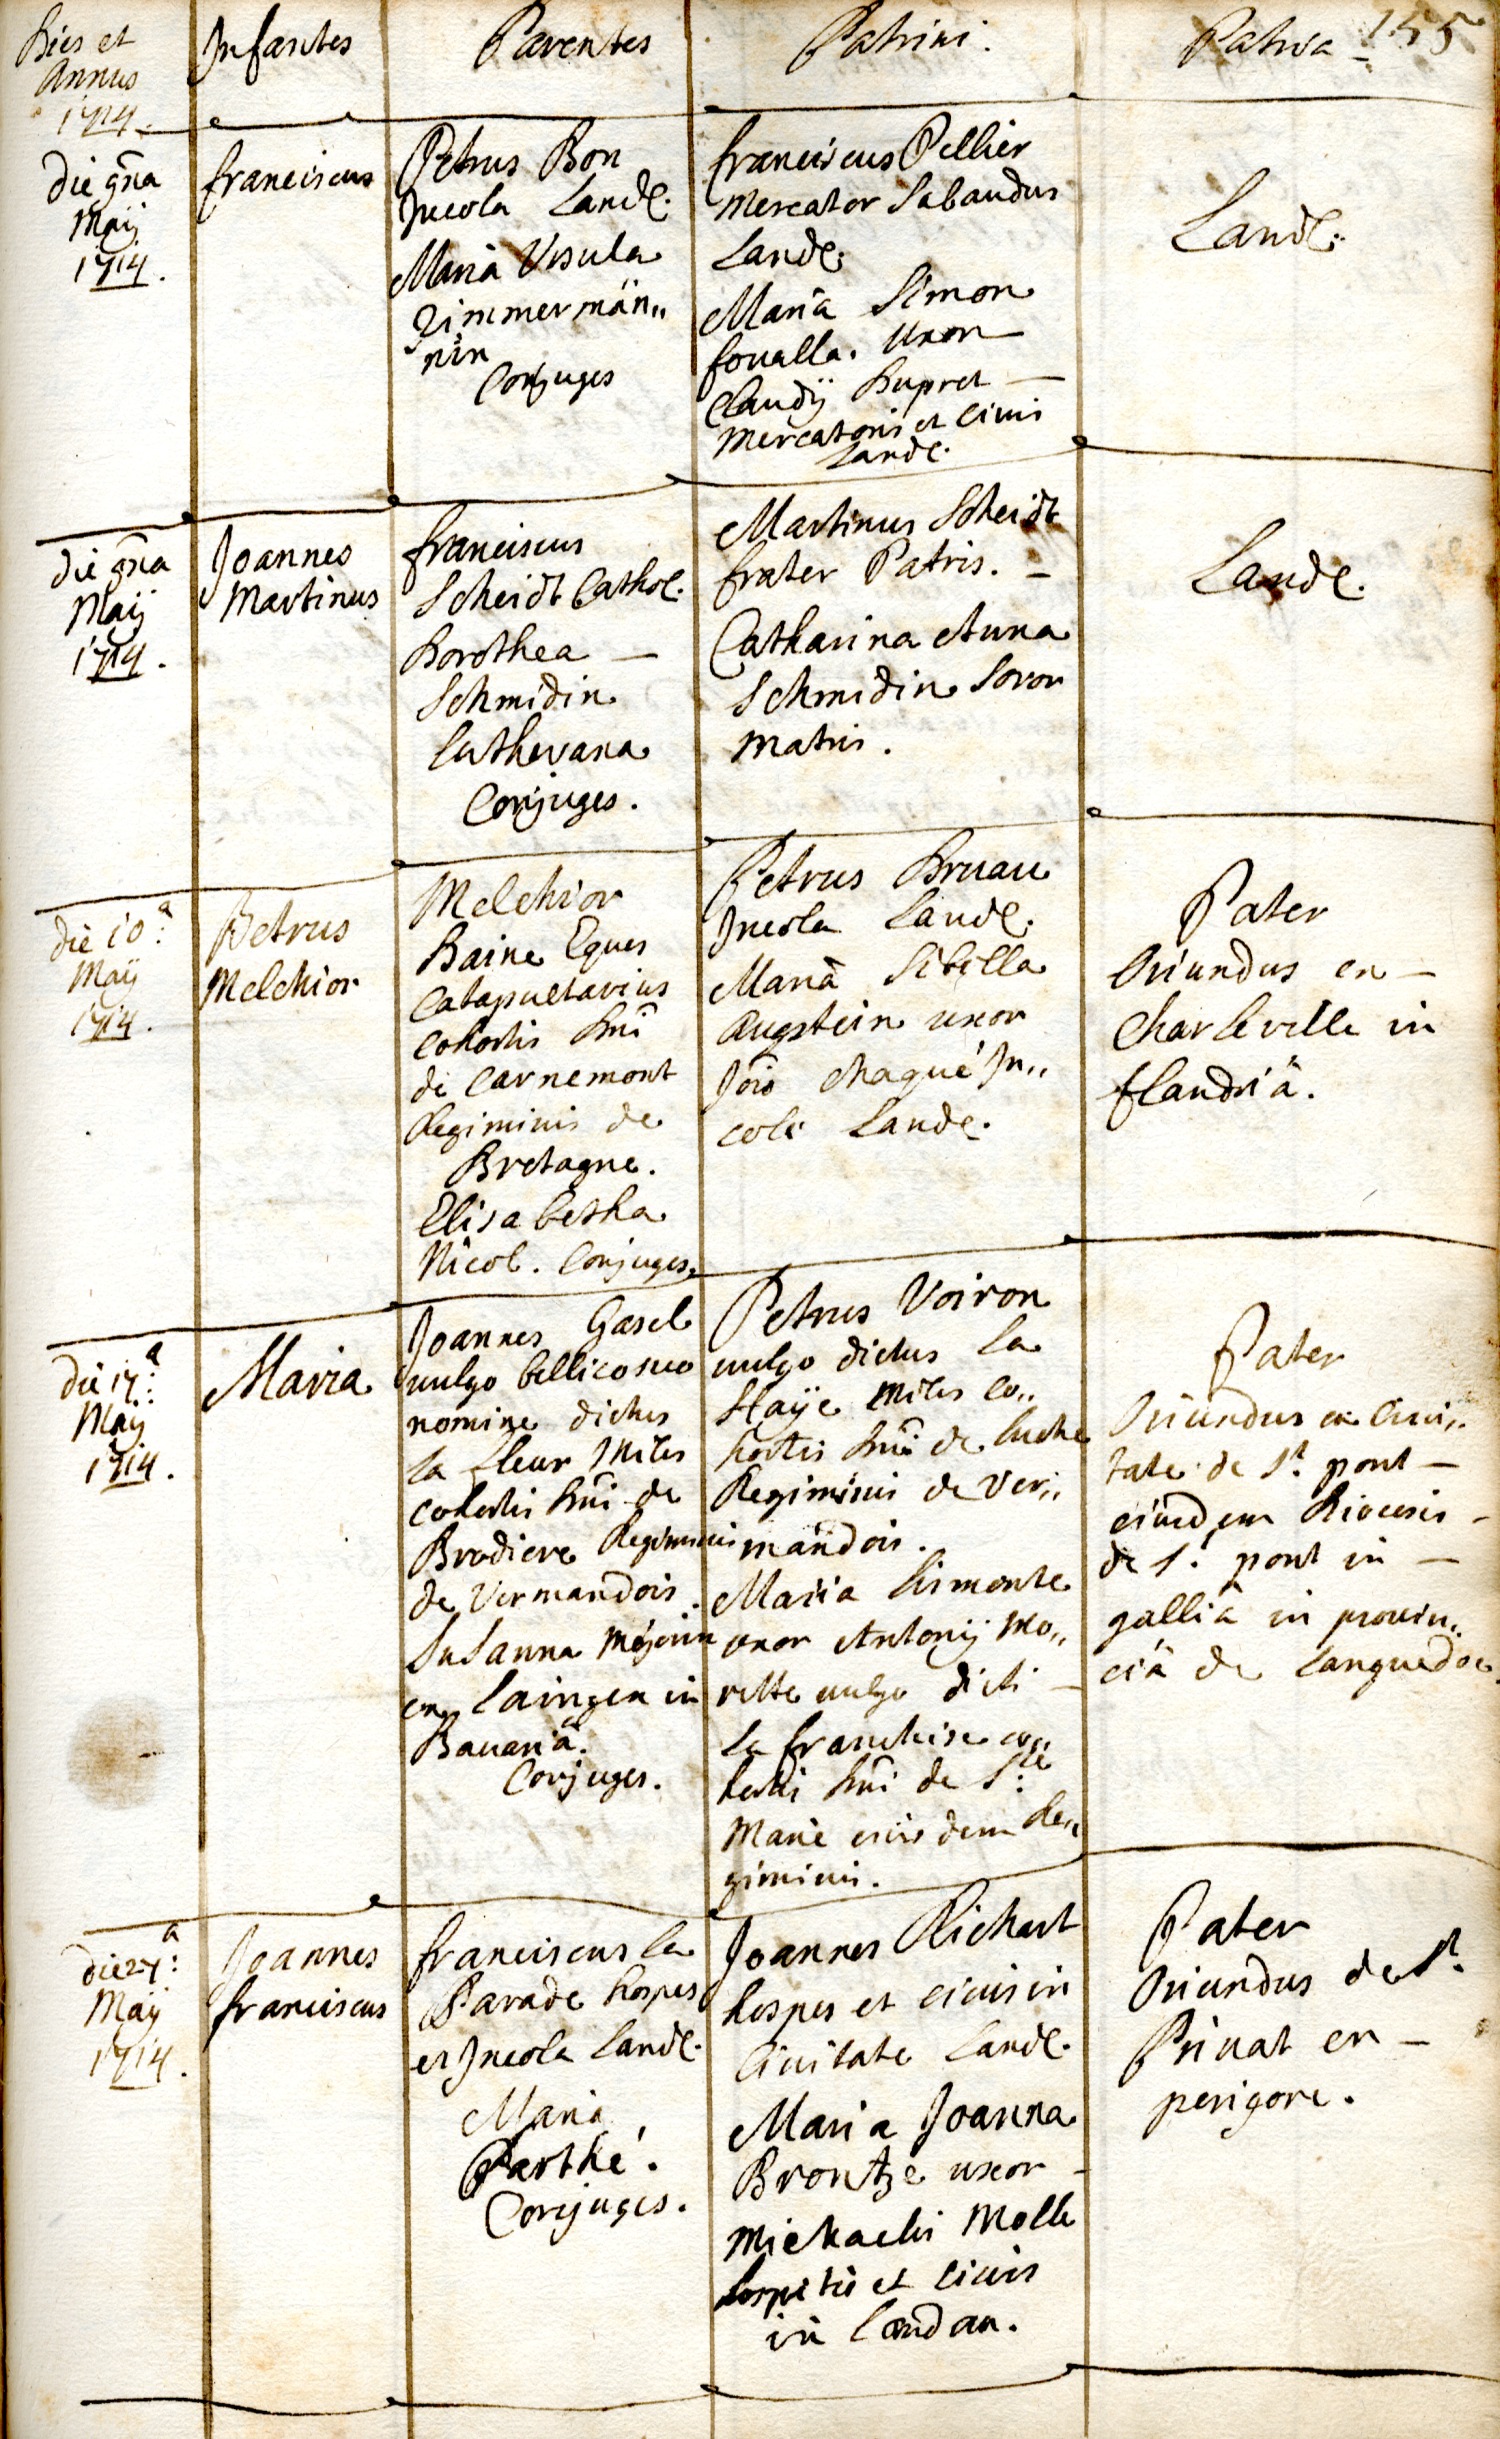 Dies et
Annus
1714.
Infantes
Parentes
Patrini.
Patria
155
die 9na
Maij
1714.
franciscus
Petrus Bon
Incola Land.
Maria Ursula
Zimmermän„
nin
Conjuges
franciscus Pellier
Mercator Sabaudus
Land.
Maria Simon
fovalla. Uxor
Claudij Dupret —
Mercatoris et Civis
Land.
Land.
die 9na
Maij
1714.
Joannes
Martinus
franciscus
Scheidt Cathol.
Dorothea —
Schmidin
Lutherana
Conjuges.
Martinus Scheidt
frater Patris. —
Catharina Anna
Schmidin Soror
Matris.
Land.
die 10a:
Maij
1714.
Petrus
Melchior
Melchior
Baine Eques
Catapultarius
Cohortis Dni
de Carnemont
Regiminis de
Bretagne.
Elisabetha
Nicol. Conjuges.
Petrus Bruau
Incola Land.
Maria Sibilla
Augstein uxor
Jois Chaqué In„
cola Land.
Pater
Oriundus ex —
Charleville in
flandriâ.
die 17a:
Maij
1714.
Maria
Joannes Gasel
vulgo bellicoso
nomine dictus
la fleur Miles
cohortis Dni de
Brodiere Regiminis
de Vermandois.
Susanna Mejerin
ex Laingen in
Bavariâ.
Conjuges.
Petrus Voiron
vulgo dictus la
Haÿe Miles co„
hortis Dni de Luche
Regiminis de Ver„
mandois.
Maria Simonte
uxor Antonij Mo„
rette vulgo dicti —
la franchise co„
hortis Dni de Ste:
Marie eiusdem Re„
giminis.
Pater
Oriundus ex Civi„
tate de St. pont —
eiusdem Diocesis —
de S. pont in —
galliâ in provin„
ciâ de Languedoc
die 27a:
Maij
1714.
Joannes
franciscus
franciscus la
Parade hospes
et Incola Land.
Maria
Parthé.
Conjuges.
Joannes Richart
hospes et civis in
Civitate Land.
Maria Joanna
Brontze uxor —
Michaelis Molle
hospitis et civis
in Landau.
Pater
Oriundus de St.
Privat en —
perigore.